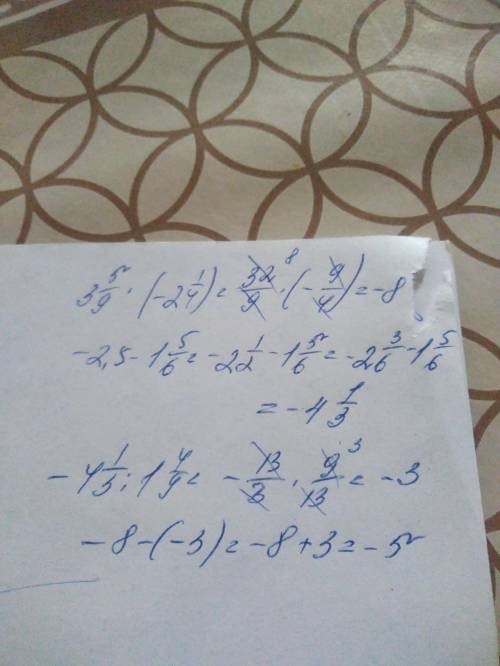 3 5/9 · (-2 1/4) = 32/9 8 · (-9/4) = -8
-2,5 - 1 5/6 = -2 1/2 - 1 5/6 = -2 3/6 - 1 5/6
= -4 1/3
-4 1/3 : 1 4/9 = -13/3 · 9/13 3 = -3
-8 - (-3) = -8 + 3 = -5